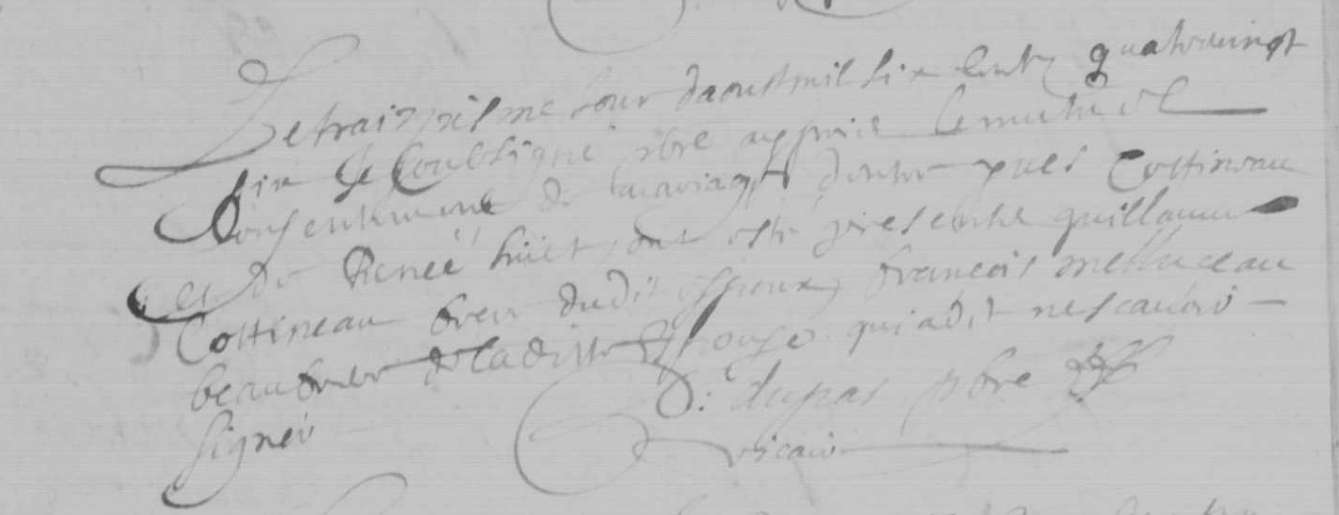 Le traiziesme Jour daoust mil six centz quatrevingt
six Je soubsigné pbre ay pris le mutuel
consentement de mariage dentre yves Cottineau
et de Renée huet, ont esté presents guillaume
Cottineau frere dudit espoux, francois
beaufrere de laditte Espouse qui a dit ne scavoir
signer
dupas pbre
vicaire